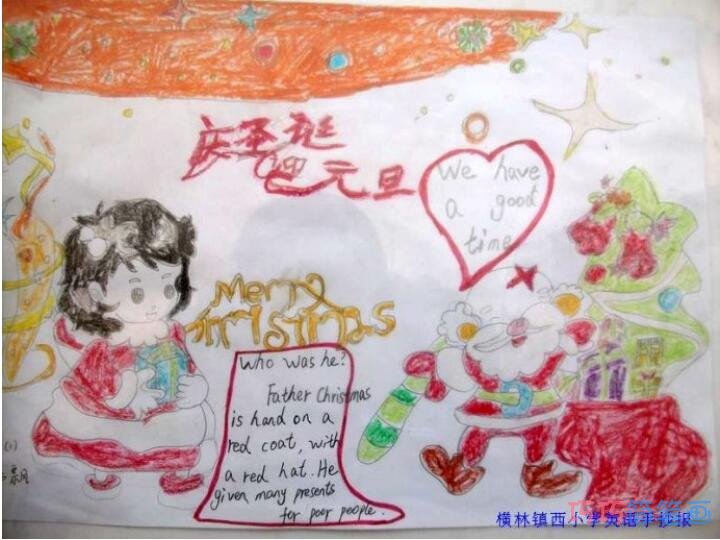 庆圣诞
迎元旦
We have
a good
time
Merry
Christmas
Who was he?
Father Christmas
is hand on a
red coat, with
a red hat. He
given many presents
for poor people.
横林镇西小学英语手抄报